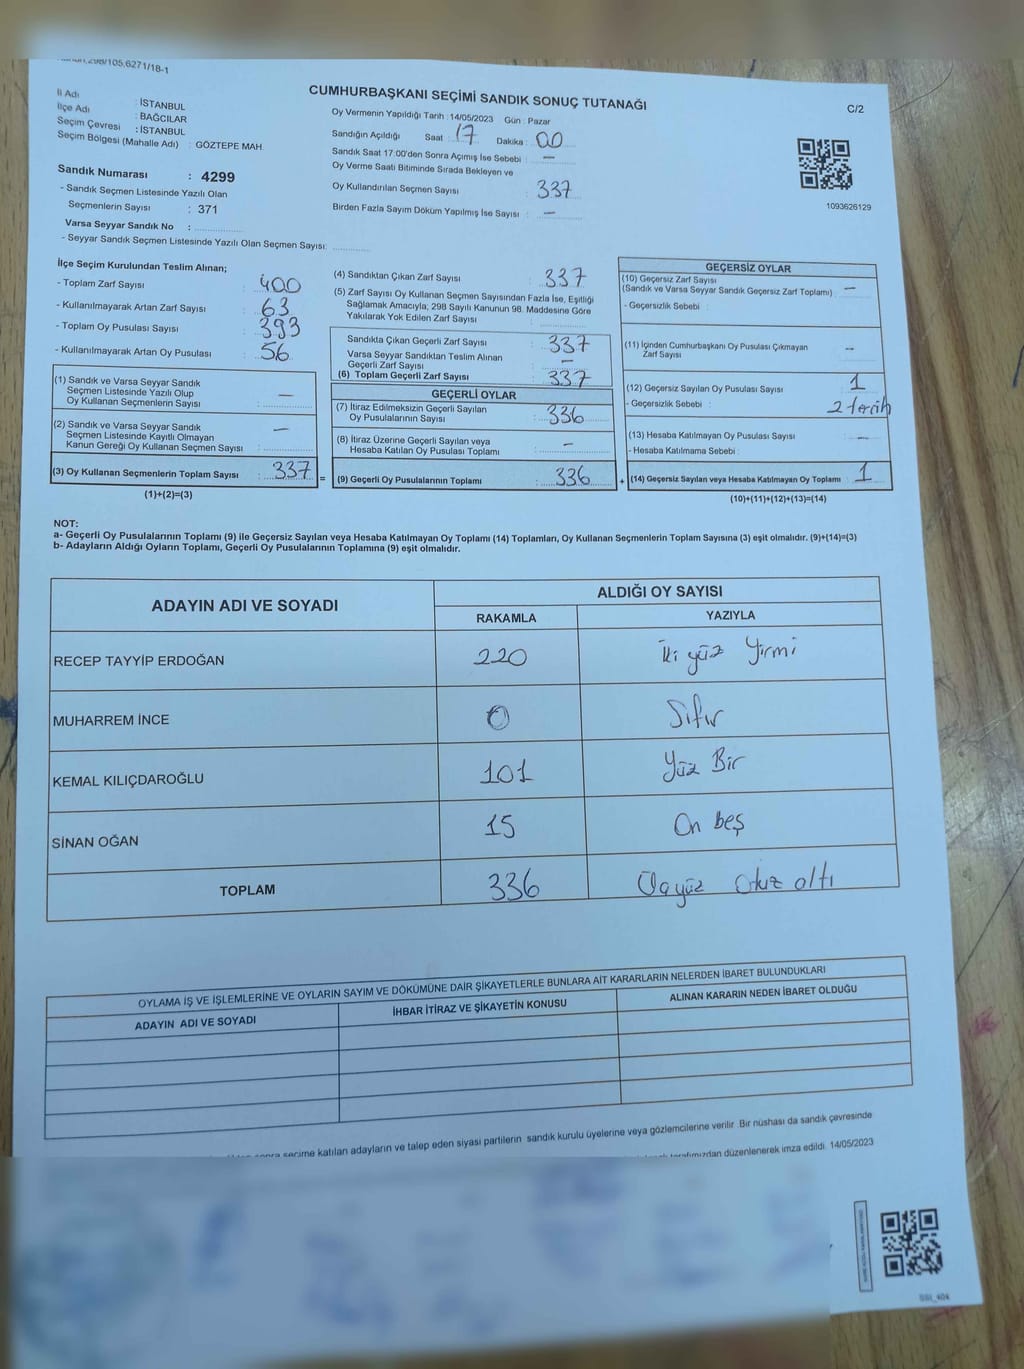 298/105,6271/18-1
CUMHURBAŞKANI SEÇİMİ SANDIK SONUÇ TUTANAĞI
C/2
İl Adı : İSTANBUL
İlçe Adı : BAĞCILAR
Seçim Çevresi : İSTANBUL
Seçim Bölgesi (Mahalle Adı) : GÖZTEPE MAH.
Sandık Numarası : 4299
- Sandık Seçmen Listesinde Yazılı Olan
Seçmenlerin Sayısı : 371
Varsa Seyyar Sandık No :
- Seyyar Sandık Seçmen Listesinde Yazılı Olan Seçmen Sayısı:
Oy Vermenin Yapıldığı Tarih : 14/05/2023 Gün : Pazar
Sandığın Açıldığı Saat : 17 Dakika : 00
Sandık Saat 17:00'den Sonra Açımış İse Sebebi : —
Oy Verme Saati Bitiminde Sırada Bekleyen ve
Oy Kullandırılan Seçmen Sayısı : 337
Birden Fazla Sayım Döküm Yapılmış İse Sayısı : —
1093626129
İlçe Seçim Kurulundan Teslim Alınan;
- Toplam Zarf Sayısı : 400
- Kullanılmayarak Artan Zarf Sayısı : 63
- Toplam Oy Pusulası Sayısı : 393
- Kullanılmayarak Artan Oy Pusulası : 56
(1) Sandık ve Varsa Seyyar Sandık
Seçmen Listesinde Yazılı Olup
Oy Kullanan Seçmenlerin Sayısı : —
(2) Sandık ve Varsa Seyyar Sandık
Seçmen Listesinde Kayıtlı Olmayan
Kanun Gereği Oy Kullanan Seçmen Sayısı : —
(3) Oy Kullanan Seçmenlerin Toplam Sayısı : 337
(1)+(2)=(3)
(4) Sandıktan Çıkan Zarf Sayısı : 337
(5) Zarf Sayısı Oy Kullanan Seçmen Sayısından Fazla İse, Eşitliği
Sağlamak Amacıyla; 298 Sayılı Kanunun 98. Maddesine Göre
Yakılarak Yok Edilen Zarf Sayısı :
Sandıkta Çıkan Geçerli Zarf Sayısı : 337
Varsa Seyyar Sandıktan Teslim Alınan
Geçerli Zarf Sayısı : —
(6) Toplam Geçerli Zarf Sayısı : 337
GEÇERLİ OYLAR
(7) İtiraz Edilmeksizin Geçerli Sayılan
Oy Pusulalarının Sayısı : 336
(8) İtiraz Üzerine Geçerli Sayılan veya
Hesaba Katılan Oy Pusulası Toplamı : —
= (9) Geçerli Oy Pusulalarının Toplamı : 336
GEÇERSİZ OYLAR
(10) Geçersiz Zarf Sayısı
(Sandık ve Varsa Seyyar Sandık Geçersiz Zarf Toplamı) : —
- Geçersizlik Sebebi :
(11) İçinden Cumhurbaşkanı Oy Pusulası Çıkmayan
Zarf Sayısı : —
(12) Geçersiz Sayılan Oy Pusulası Sayısı : 1
- Geçersizlik Sebebi : 2 tercih
(13) Hesaba Katılmayan Oy Pusulası Sayısı : —
- Hesaba Katılmama Sebebi :
+ (14) Geçersiz Sayılan veya Hesaba Katılmayan Oy Toplamı : 1
(10)+(11)+(12)+(13)=(14)
NOT:
a- Geçerli Oy Pusulalarının Toplamı (9) ile Geçersiz Sayılan veya Hesaba Katılmayan Oy Toplamı (14) Toplamları, Oy Kullanan Seçmenlerin Toplam Sayısına (3) eşit olmalıdır. (9)+(14)=(3)
b- Adayların Aldığı Oyların Toplamı, Geçerli Oy Pusulalarının Toplamına (9) eşit olmalıdır.
ADAYIN ADI VE SOYADI ALDIĞI OY SAYISI
RAKAMLA YAZIYLA
RECEP TAYYİP ERDOĞAN 220 İki yüz Yirmi
MUHARREM İNCE 0 Sıfır
KEMAL KILIÇDAROĞLU 101 Yüz Bir
SİNAN OĞAN 15 On beş
TOPLAM 336 Üçyüz Otuz altı
OYLAMA İŞ VE İŞLEMLERİNE VE OYLARIN SAYIM VE DÖKÜMÜNE DAİR ŞİKAYETLERLE BUNLARA AİT KARARLARIN NELERDEN İBARET BULUNDUKLARI
ADAYIN ADI VE SOYADI İHBAR İTİRAZ VE ŞİKAYETİN KONUSU ALINAN KARARIN NEDEN İBARET OLDUĞU
sonra seçime katılan adayların ve talep eden siyasi partilerin sandık kurulu üyelerine veya gözlemcilerine verilir. Bir nüshası da sandık çevresinde
tarafımızdan düzenlenerek imza edildi. 14/05/2023